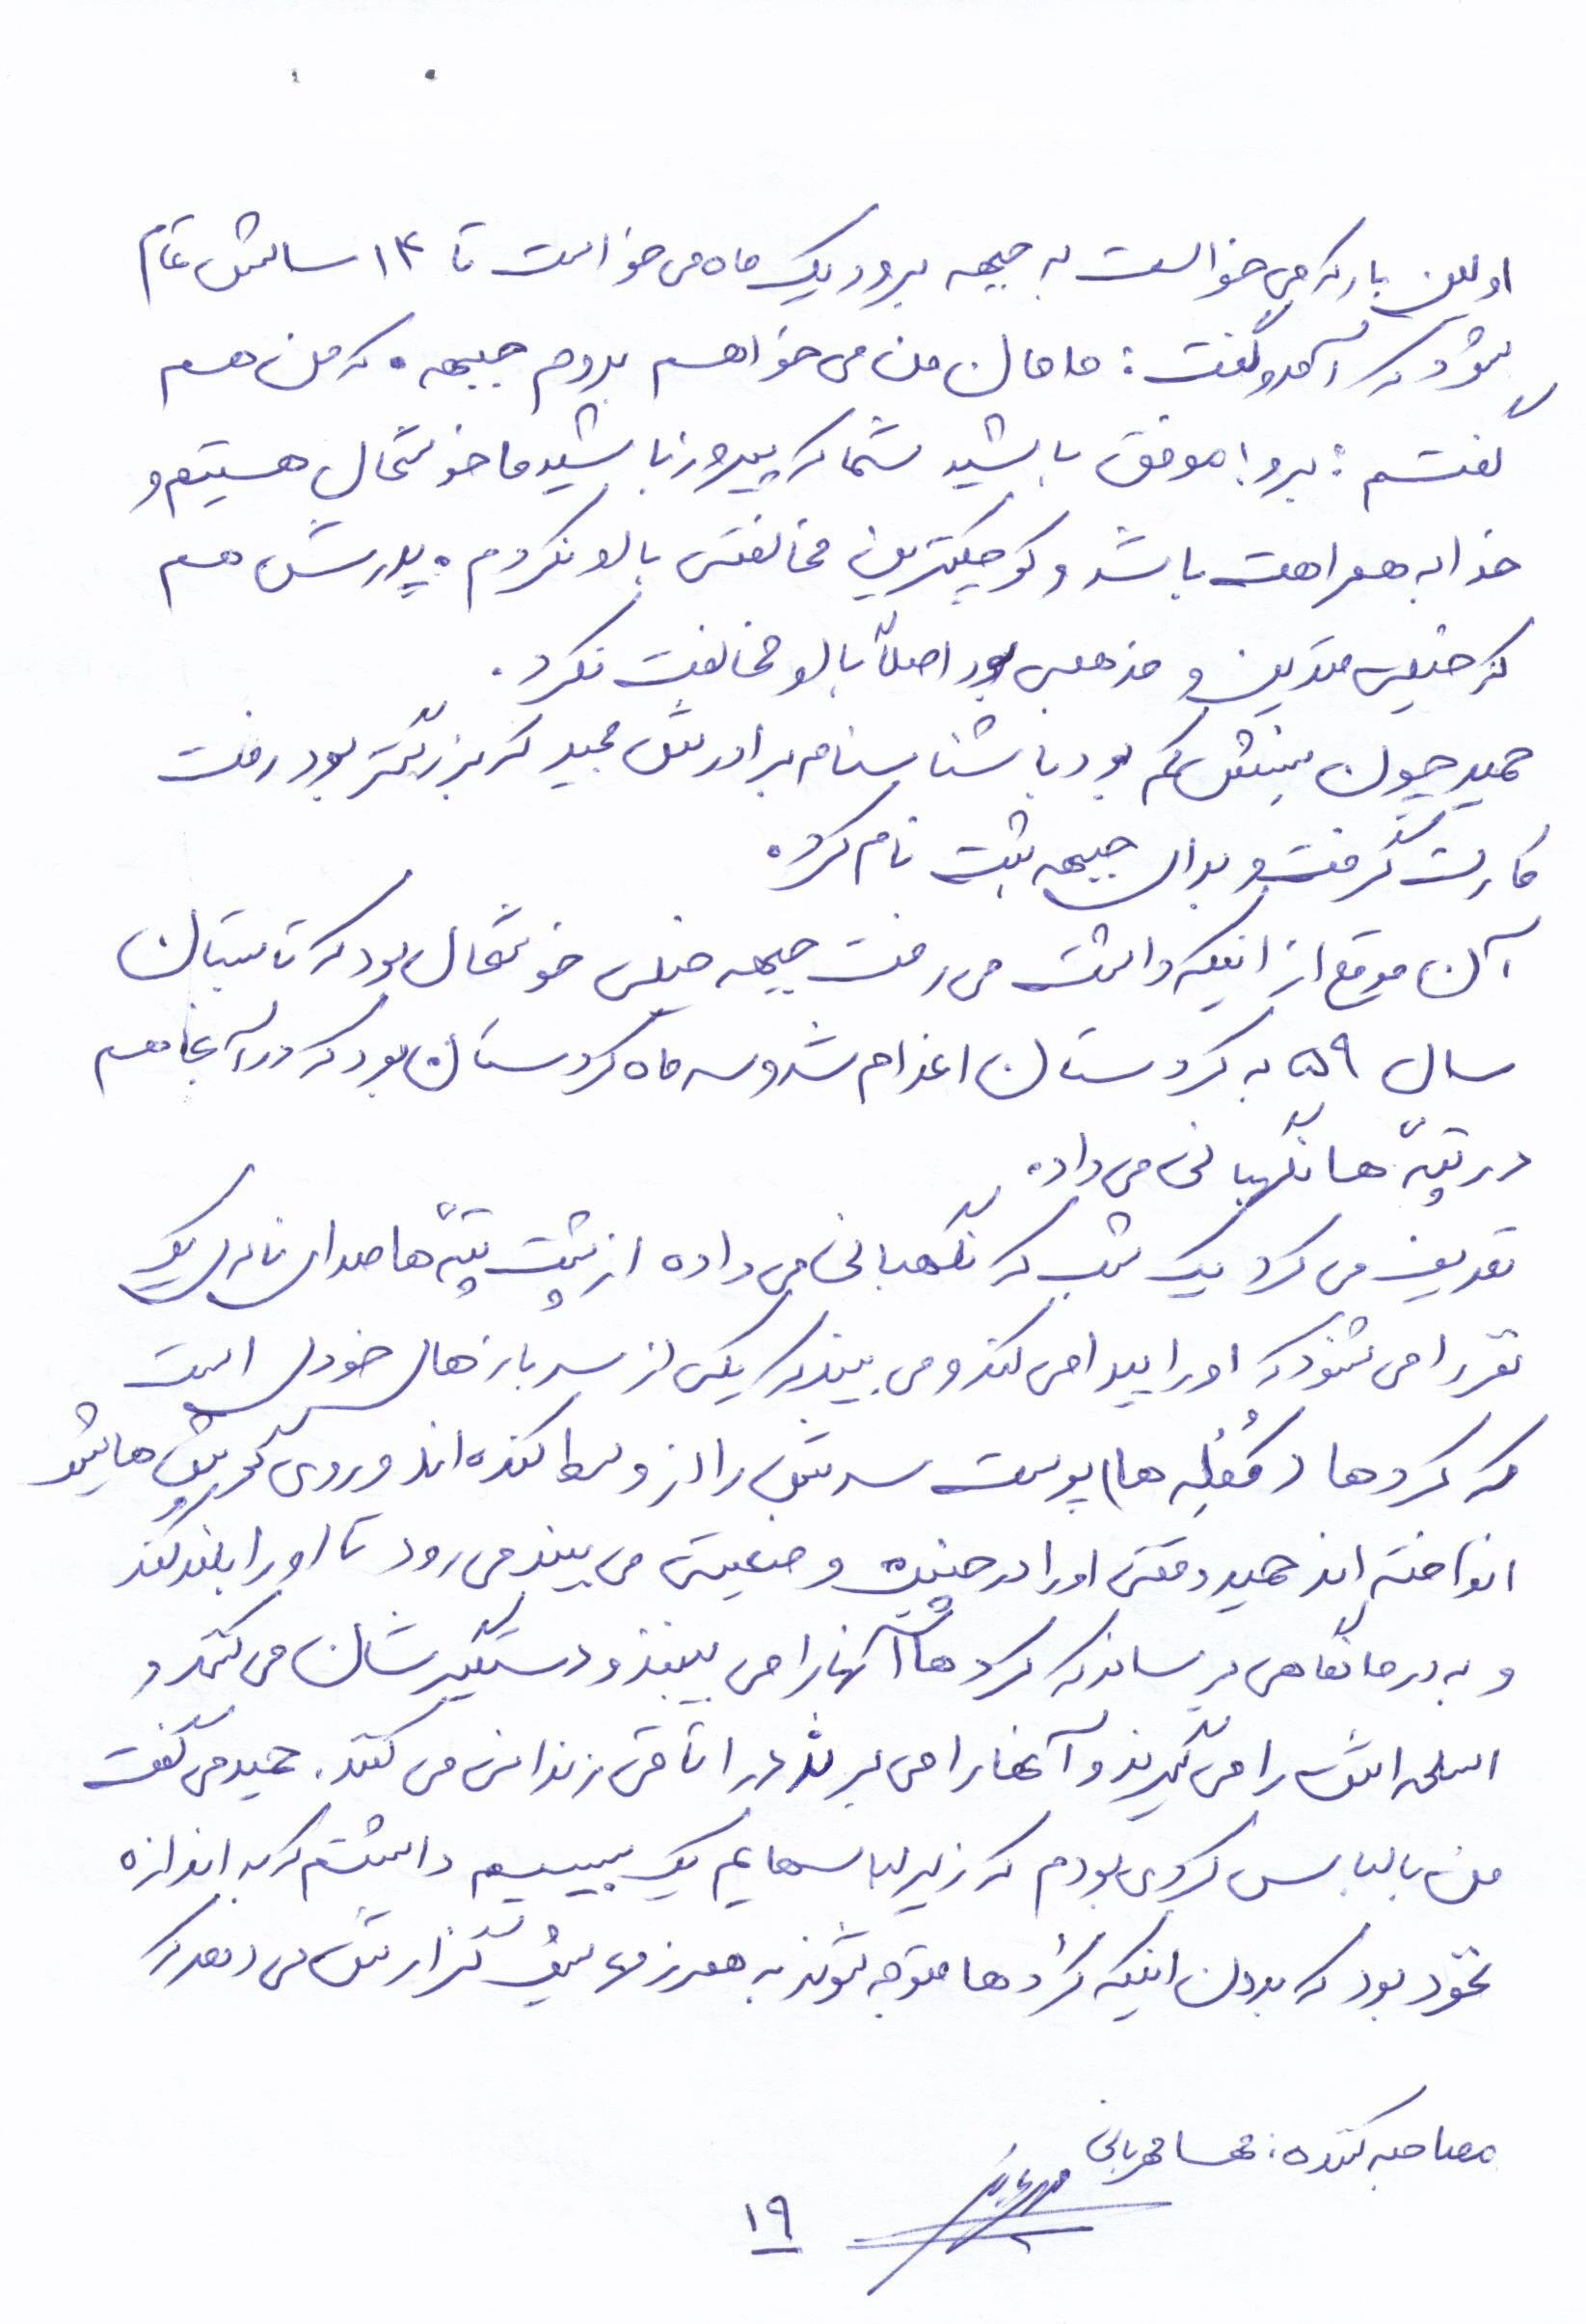 اولین بار که می خواست به جبهه برود یک ماه می خواست تا ۱۴ سالش تمام
شود که آمد و گفت : مامان من می خواهم بروم جبهه . که من هم
گفتم : برو ! موفق باشید شما که پیروز باشید ما خوشحال هستیم و
خدا به همراهت باشد و کوچکترین مخالفتی با او نکردم . پدرش هم
که خیلی متدین و مذهبی بود اصلاً با او مخالفت نکرد .
حمید چون سنش کم بود با شناسنامه برادرش مجید که بزرگتر بود رفت
کارت گرفت و برای جبهه ثبت نام کرد .
آن موقع از اینکه داشت می رفت جبهه خیلی خوشحال بود که تابستان
سال ۵۹ به کردستان اعزام شد و سه ماه کردستان بود که در آنجا هم
در تپّه ها نگهبانی می داد .
تعریف می کرد یک شب که نگهبانی می داده از پشت تپّه ها صدای ناله یک
نفر را می شنود که او را پیدا می کند و می بیند که یکی از سربازهای خودی است
که کردها (کُمُلِه ها) پوست سرش را از وسط کنده اند و روی
انداخته اند حمید وقتی او را در چنین وضعیتی می بیند می رود تا او را بلند کند
و به درمانگاهی برساند که کردها آنها را می بینند و دستگیرشان می کنند و
اسلحه اش را می گیرند و آنها را می برند در اتاقی زندانی می کنند . حمید می گفت
من با لباس کردی بودم که زیر لباسهایم یک بیسیم داشتم که به اندازه
نخود بود که بدون اینکه کُردها متوجه شوند به همرزم هایش گزارش می دهد که
مصاحبه کننده : مهسا مهربانی
۱۹